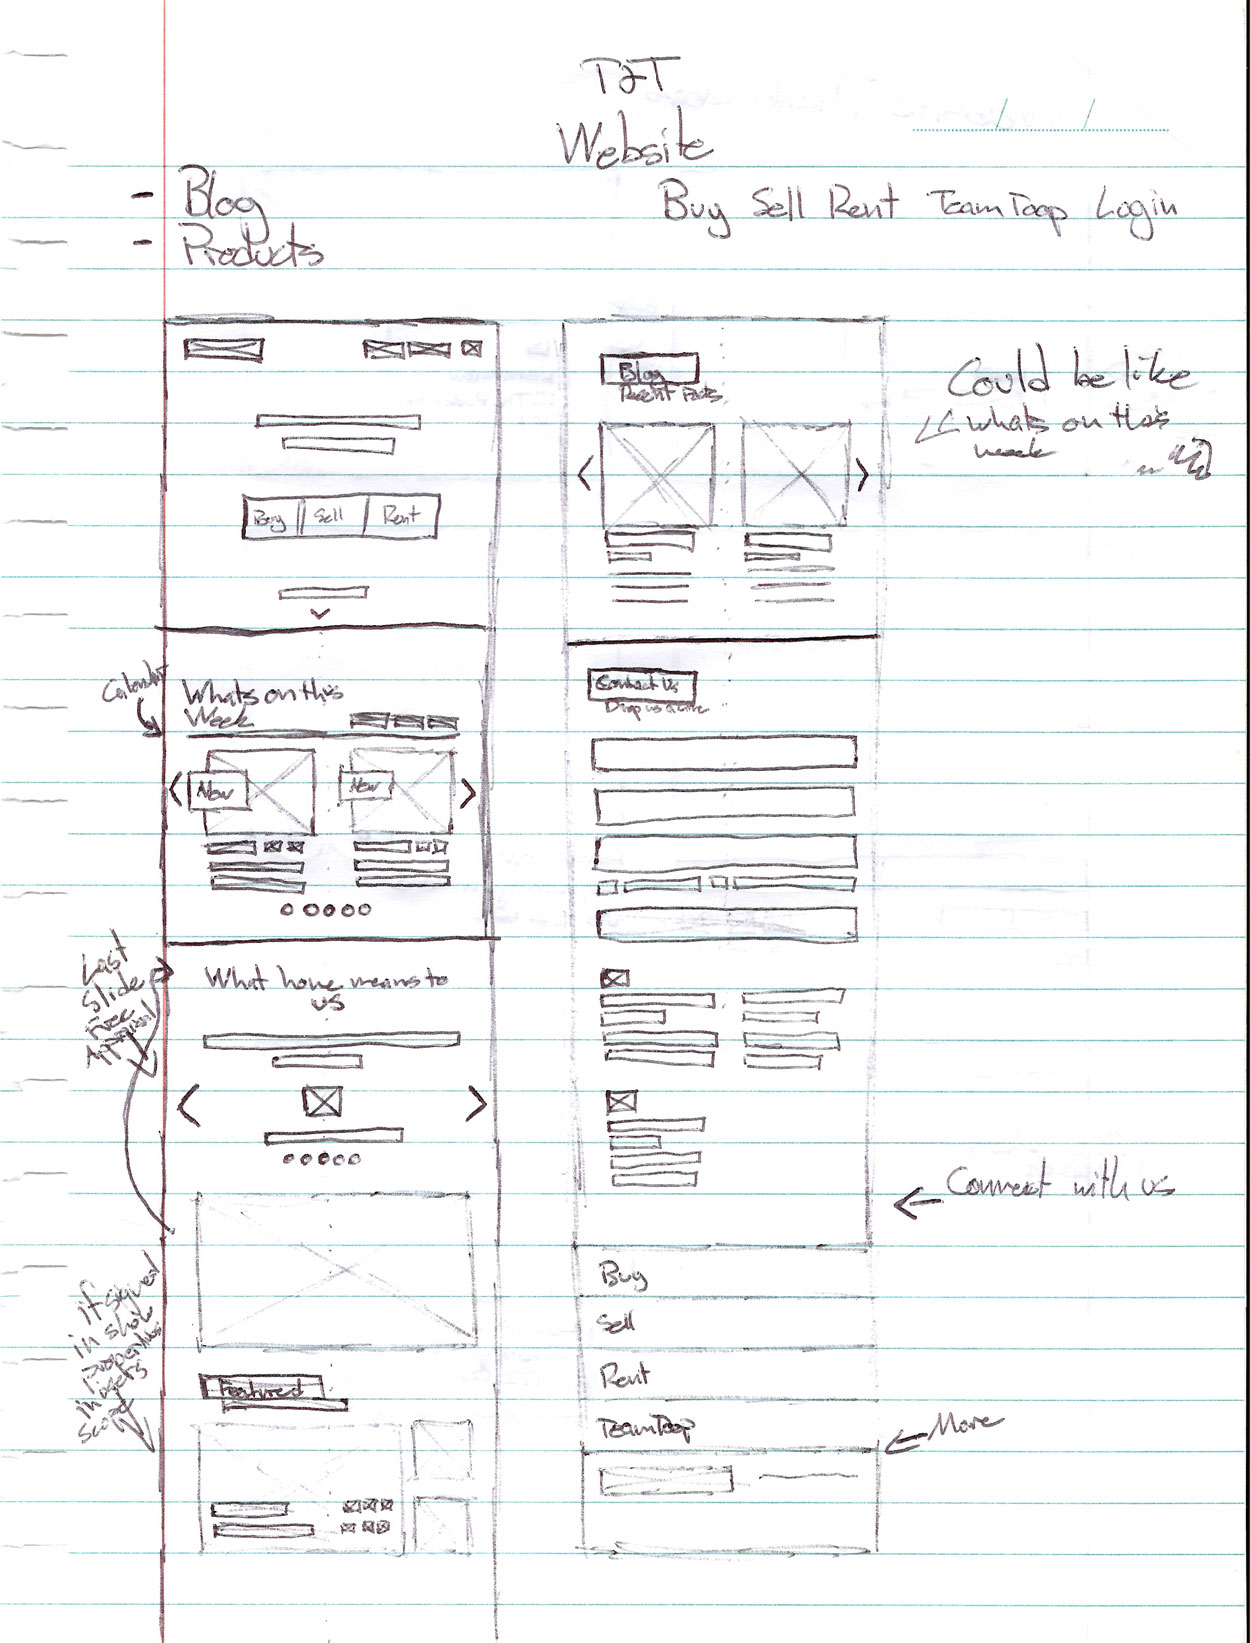 T&T
Website
- Blog
- Products
Buy Sell Rent TeamToop Login
Buy Sell Rent
Calendar
Whats on this
Week
New
New
Last
Slide
Free
Appraisal
What home means to
us
if signed
in show
properties
in users
Featured
Blog
Recent Posts
Could be like
whats on this
week
Contact Us
Drop us a line
Connect with us
Buy
Sell
Rent
TeamToop
More